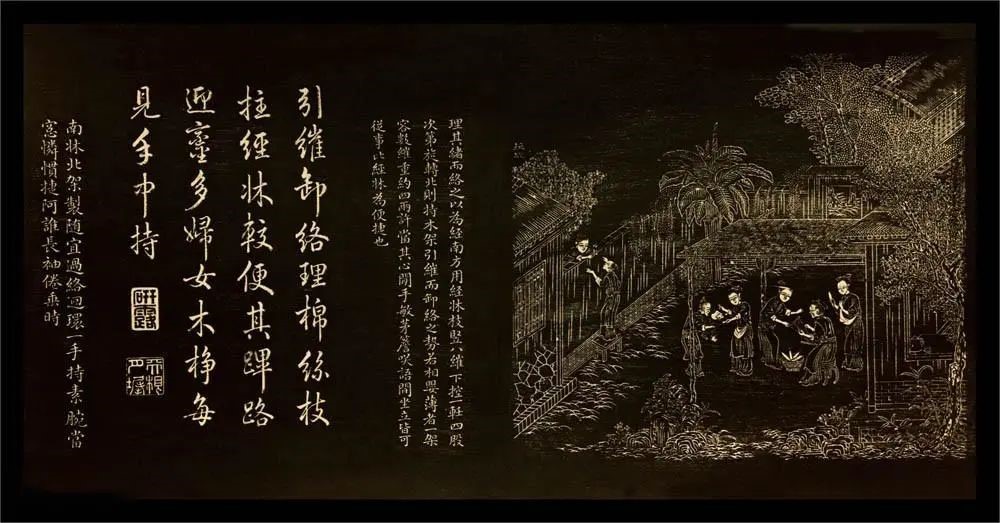 理其繀而絡之以為經南方用經牀枝豎八繀下控一軠四股
次第旋轉北則持木架引繀而卸絡之勢若相薄者一架
容數繀重約四兩許當其心閒手敏茅簷笑語間坐立皆可
從事比經牀為便捷也
引繀卸絡理棉絲枝
拄經牀較便其蹕路
迎鑾多婦女木每
見手中持
研露
南牀北架製隨宜過絡迴環一手持素腕當
窓憐慣捷阿誰長袖倦垂時